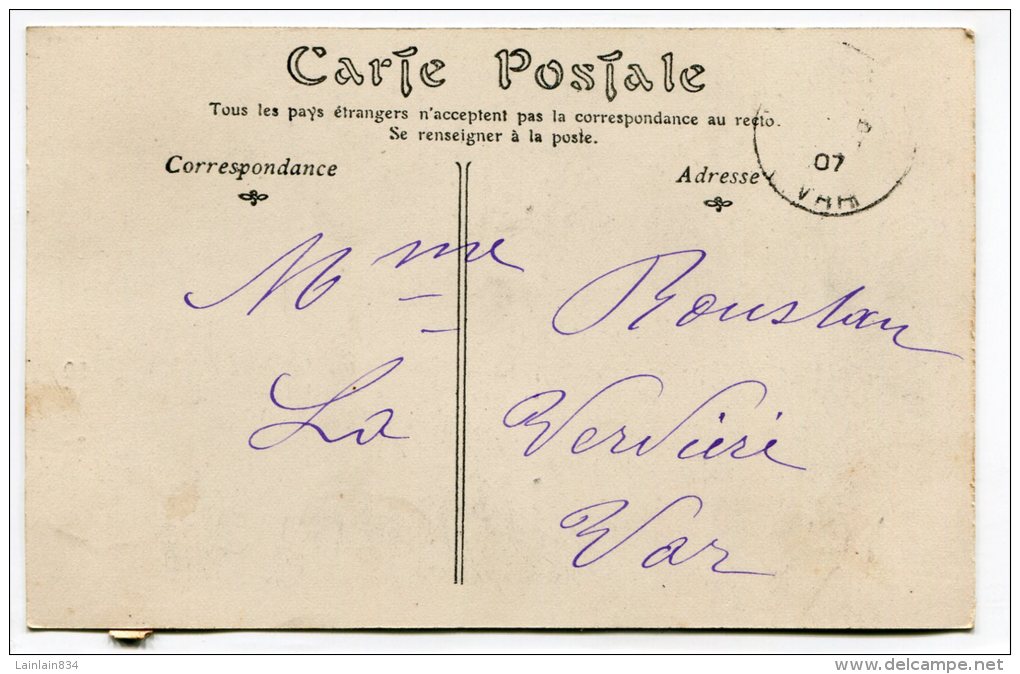 Carte Postale
Tous les pays étrangers n'acceptent pas la correspondance au recto.
Se renseigner à la poste.
Correspondance
Adresse
07
VAR
Mme Roustan
La Verdière
Var
Lainlain834
www.delcampe.net